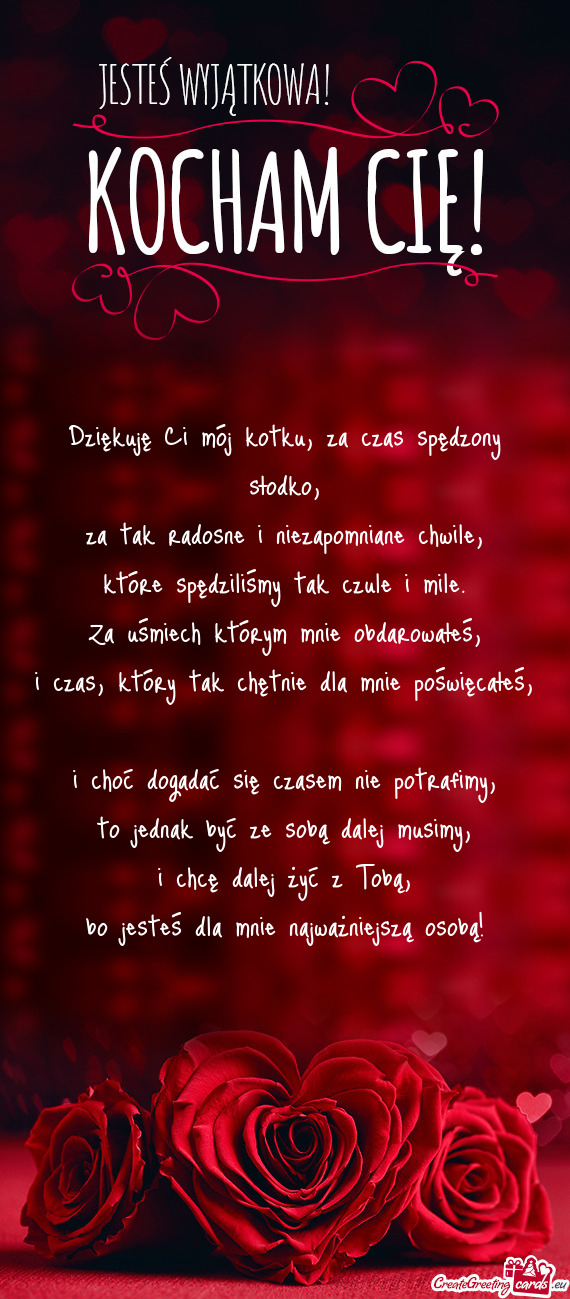 JESTEŚ WYJĄTKOWA!
KOCHAM CIĘ!
Dziękuję Ci mój kotku, za czas spędzony
słodko,
za tak radosne i niezapomniane chwile,
które spędziliśmy tak czule i mile.
Za uśmiech którym mnie obdarowałeś,
i czas, który tak chętnie dla mnie poświęcałeś,
i choć dogadać się czasem nie potrafimy,
to jednak być ze sobą dalej musimy,
i chcę dalej żyć z Tobą,
bo jesteś dla mnie najważniejszą osobą!
CreateGreeting cards .eu